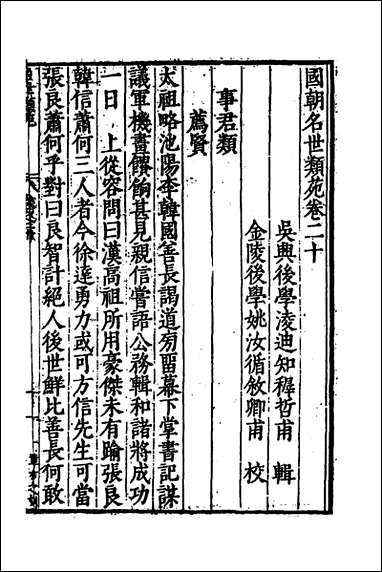 國朝名世類苑卷二十
吳興後學淩迪知穉哲甫 輯
金陵後學姚汝循敘卿甫 校
事君類
薦賢
太祖略池陽李韓國善長謁道刱畱幕下掌書記謀
議軍機書饋餉甚見親信嘗語公務輯和諸將成功
一日 上從容問曰漢高祖所用豪傑未有踰張良
韓信蕭何三人者今徐達勇力或可方信先生可當
張良蕭何乎對曰良智計絕人後世鮮比善長何敢